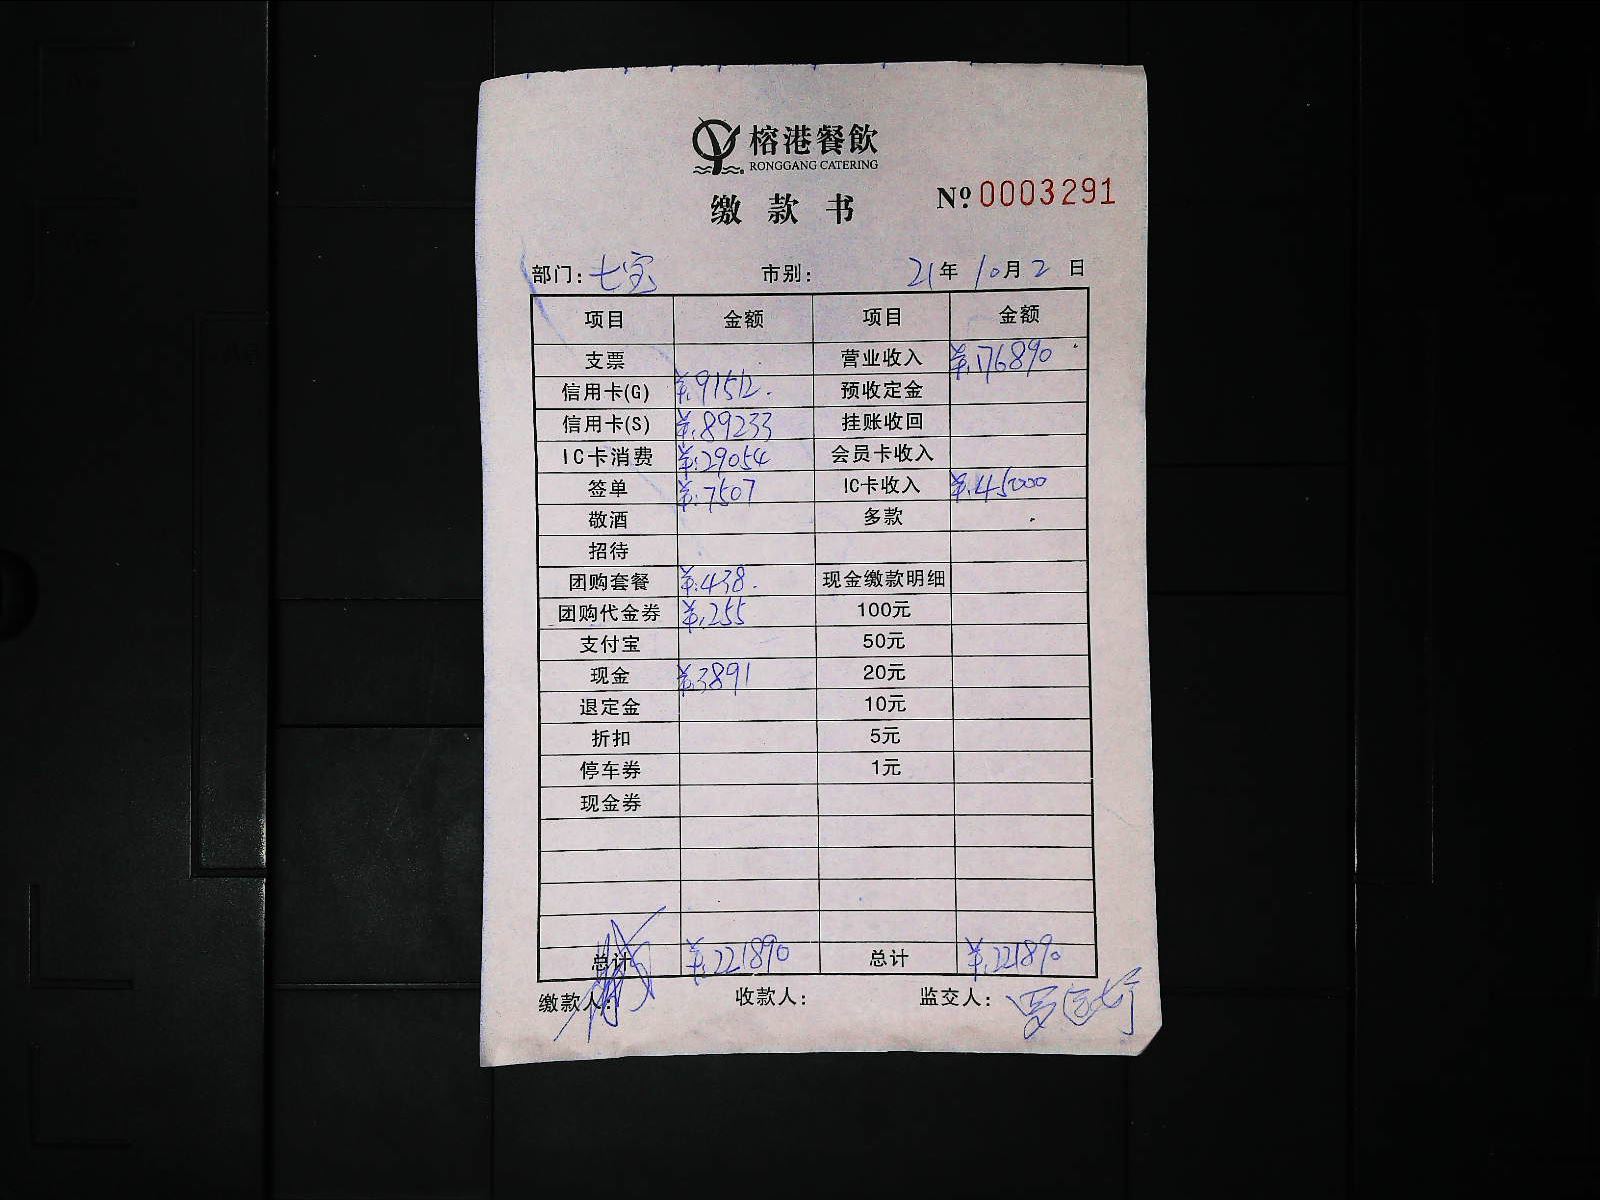 榕港餐飲
RONGGANG CATERING
缴款书 Nº.0003291
部门：七宝 市别： 21年10月2日
项目 金额 项目 金额
支票 营业收入 ¥.176890
信用卡(G) ¥.91512. 预收定金
信用卡(S) ¥.89233 挂账收回
IC卡消费 ¥.29054 会员卡收入
签单 ¥.7507 IC卡收入 ¥.45000
敬酒 多款
招待
团购套餐 ¥.438. 现金缴款明细
团购代金券 ¥.255 100元
支付宝 50元
现金 ¥.3891 20元
退定金 10元
折扣 5元
停车券 1元
现金券
总计 ¥.221890 总计 ¥.221890
缴款人： 收款人： 监交人：